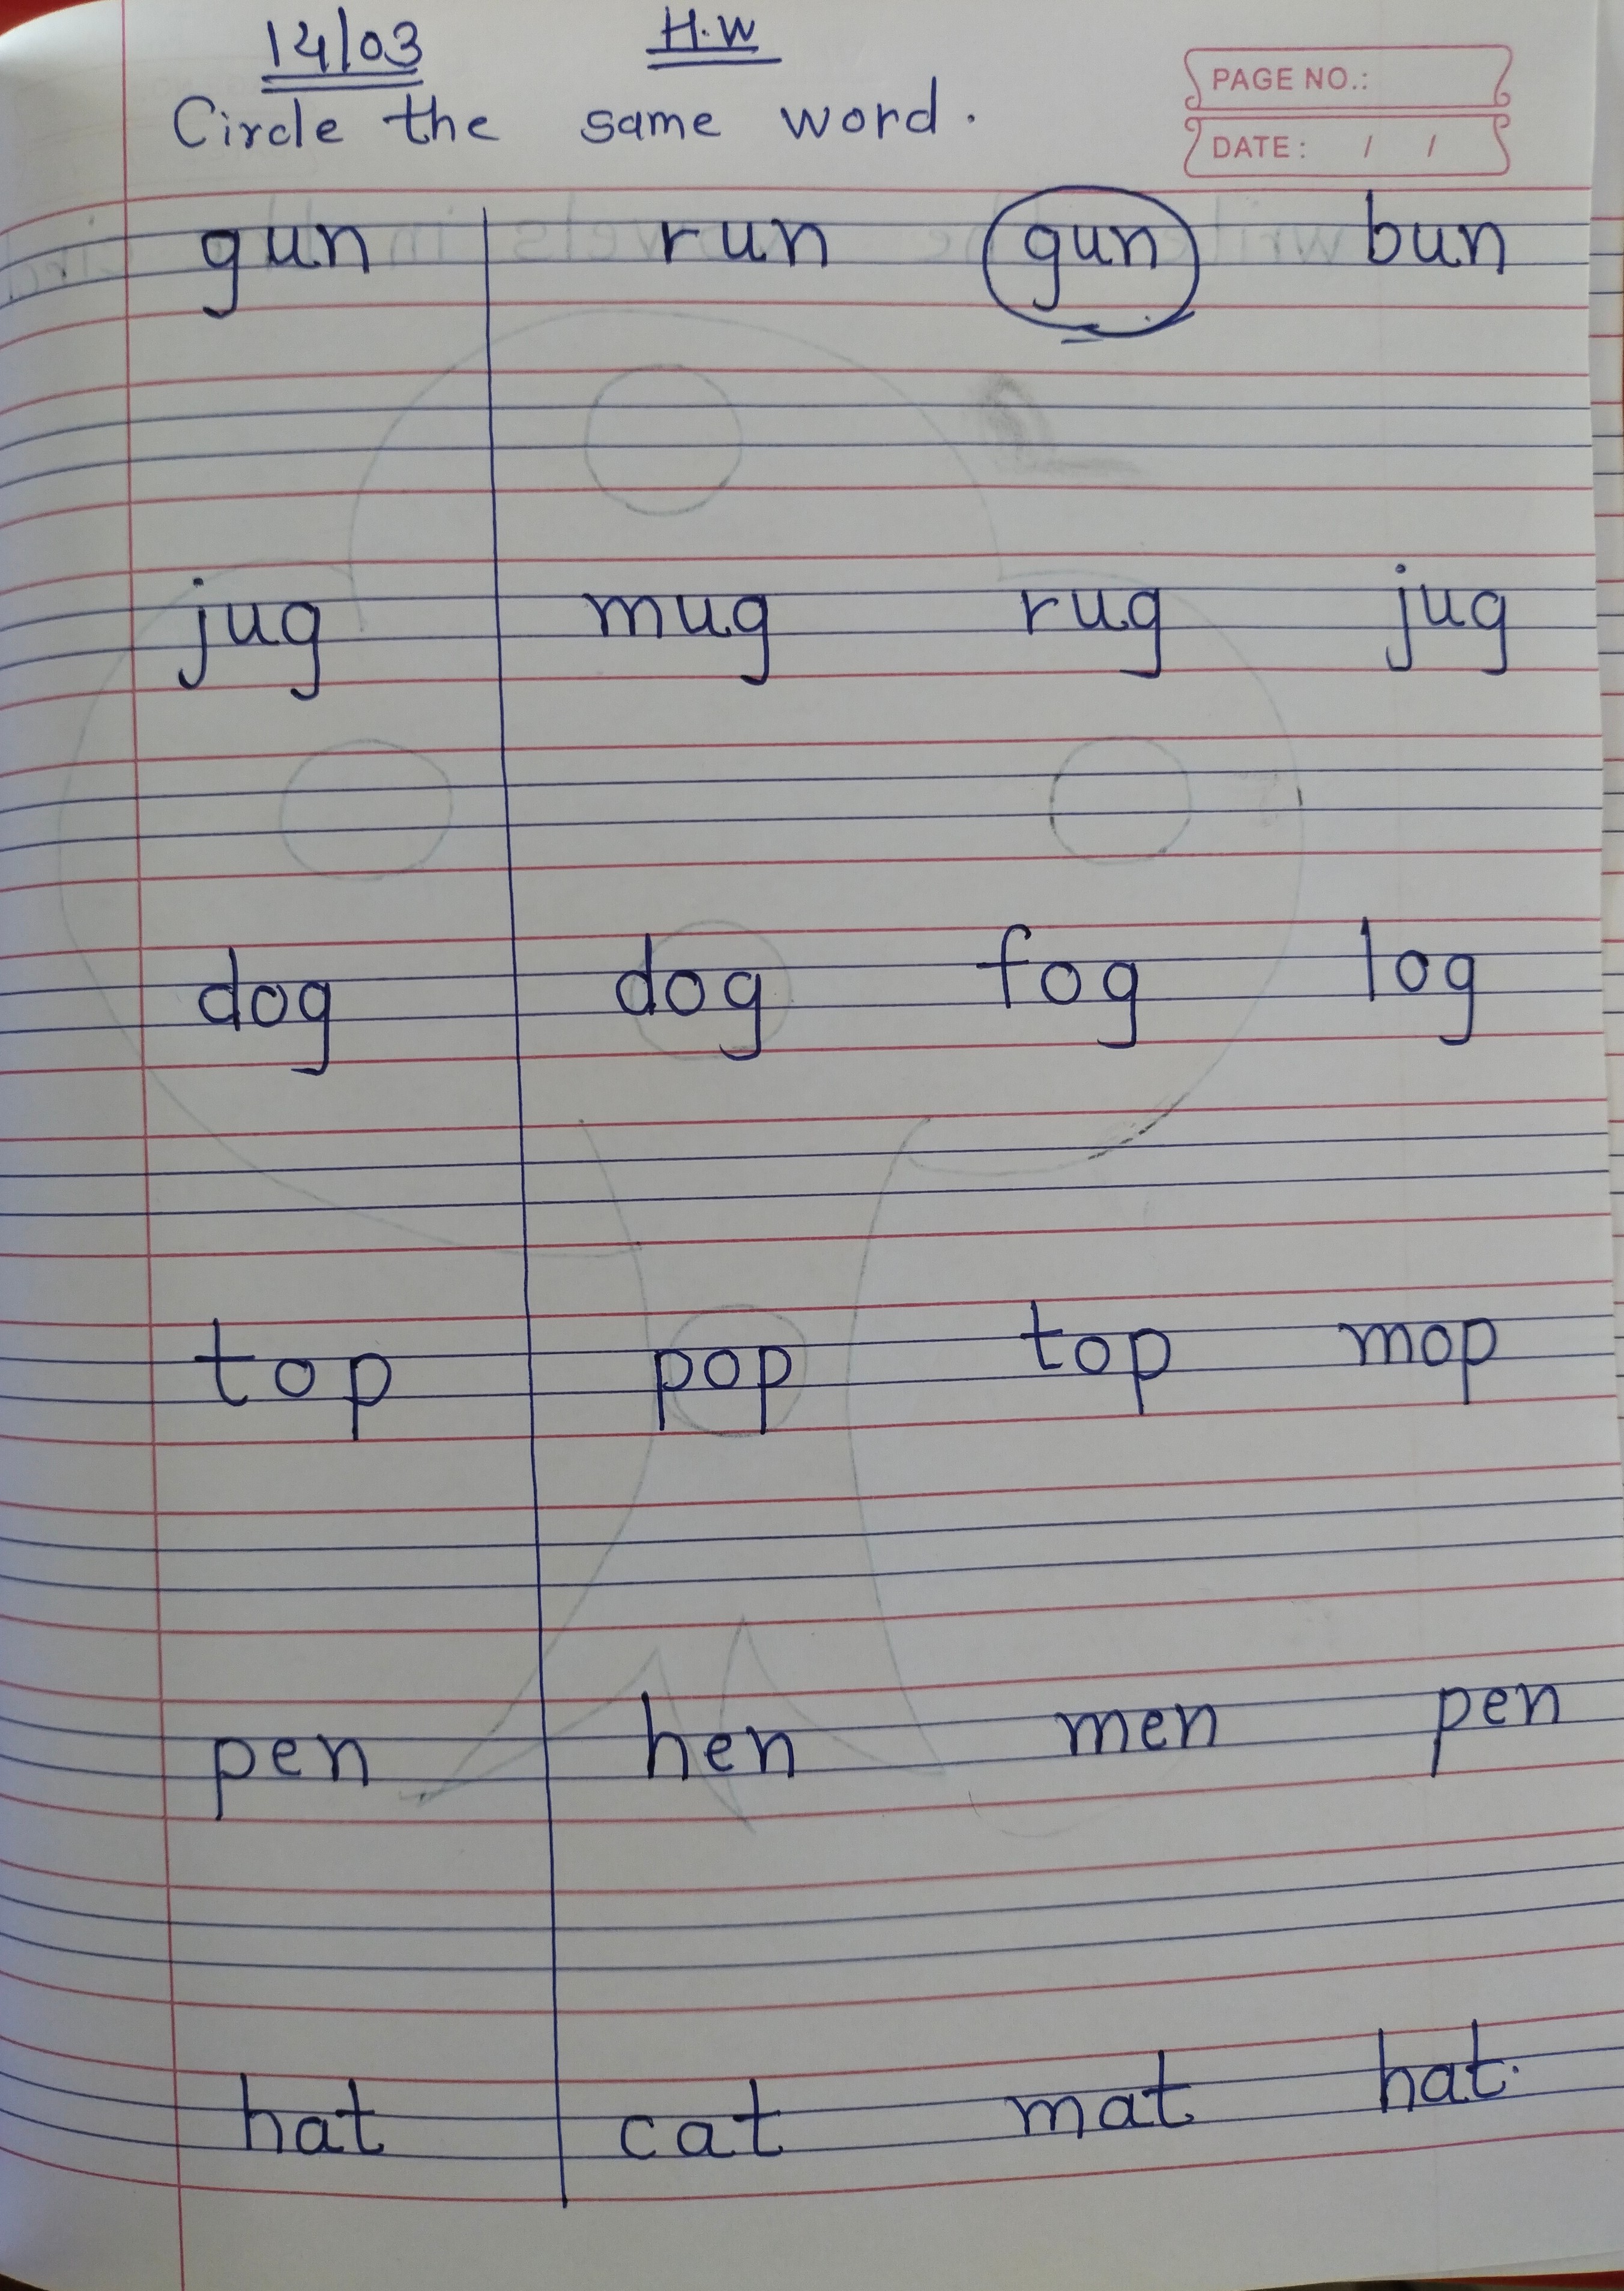 14/03 H.W
PAGE NO.:
Circle the same word.
DATE: / /
gun run gun bun
jug mug rug jug
dog dog fog log
top pop top mop
pen hen men pen
hat cat mat hat.